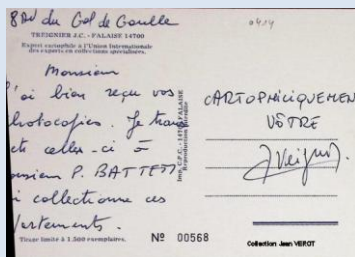 8 Av du Gal de Gaulle
TREIGNIER J.C. - FALAISE 14700
Expert cartophile à l'Union Internationale
des experts en collections spécialisées.
0414
Monsieur
J'ai bien reçu vos
photocopies. Je trans
celles-ci à
onsieur P. BATTET
i collectionne ces
artements.
Tirage limité à 1.500 exemplaires.
Imp. C.P.C. - 14700 FALAISE
Reproduction interdite
CARTOPHILIQUEMEN
VÔTRE
Nº 00568
Collection Jean VEROT